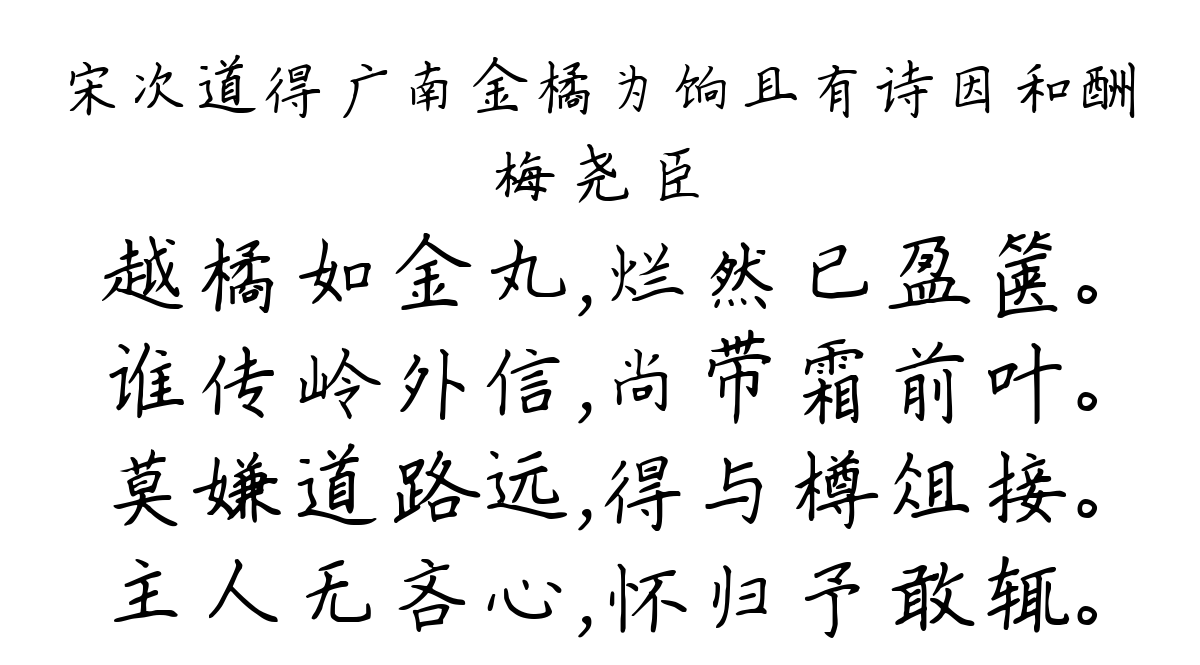 宋次道得广南金橘为饷且有诗因和酬
梅尧臣
越橘如金丸,烂然已盈箧。
谁传岭外信,尚带霜前叶。
莫嫌道路远,得与樽俎接。
主人无吝心,怀归予敢辄。